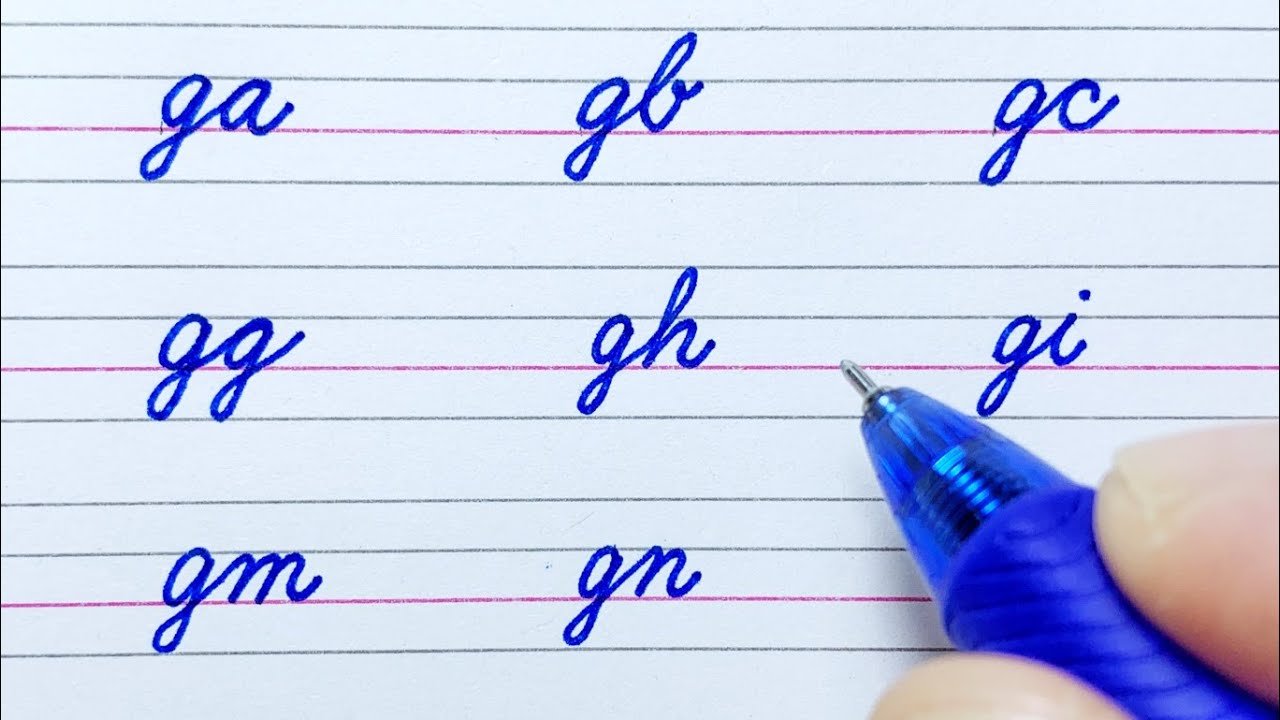 ga gb gc
gg gh gi
gm gn